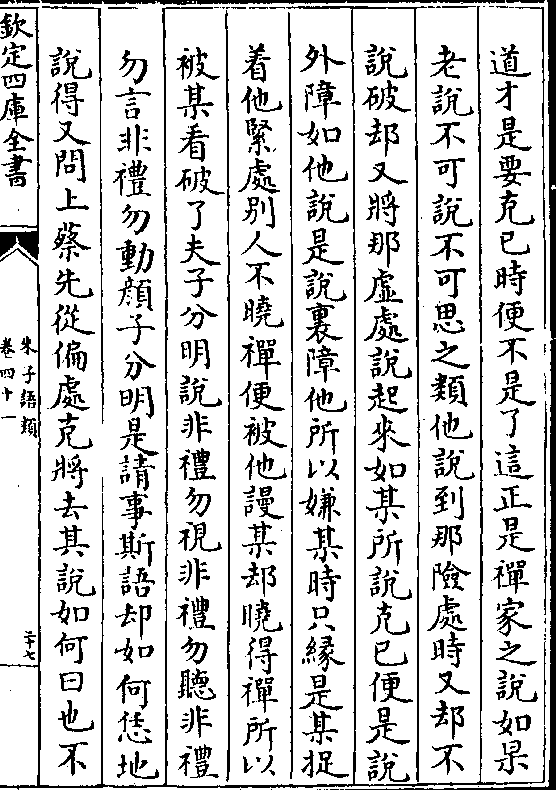 道才是要克已時便不是了這正是禪家之說如杲
老說不可說不可思之類他說到那險處時又却不
說破却又將那虛處說起來如某所說克已便是說
外障如他說是說裏障他所以嫌某時只縁是某捉
着他緊處别人不曉禪便被他謾某却曉得禪所以
被某看破了夫子分明說非禮勿視非禮勿聽非禮
勿言非禮勿動顔子分明是請事斯語却如何恁地
說得又問上蔡先從偏處克將去其說如何曰也不
欽定四庫全書
朱子語類
卷四十一
二十七